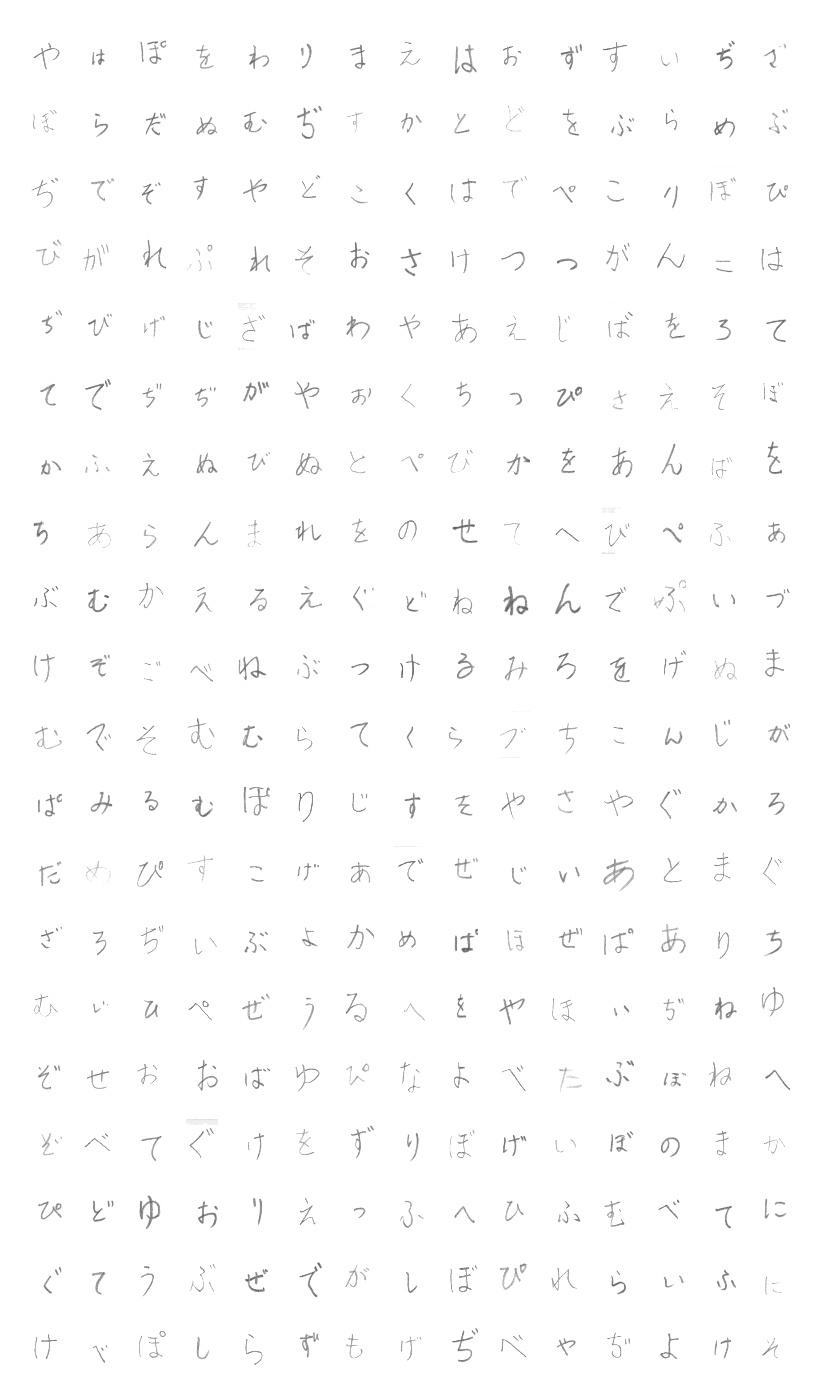 やはぽをわりまえはおずすいぢざ
ぼらだぬむぢすかとどをぶらめぶ
ぢでぞすやどこくはでぺこりぼぴ
びがれぷれそおさけつっがんこは
ぢびげじざばわやあえじばをろて
てでぢぢがやおくちっぴさえそぼ
かふえぬびぬとぺびかをあんばを
ちあらんまれをのせてへびぺふあ
ぶむかえるえぐどねねんでぷいづ
けぞごべねぶっけるみろをげぬま
むでそむむらてくらづちこんじが
ぱみるむぽりじすをやさやぐかろ
だめぴすこげあでぜじいあとまぐ
ざろぢいぶよかめぱほぜぱありち
むいひぺぜうるへをやほいぢねゆ
ぞせおおばゆぴなよべたぶぼねへ
ぞべてぐけをずりぼげいぼのまか
ぴどゆおりえっふへひふむべてに
ぐてうぶぜでがしぼぴれらいふに
けべぽしらずもげぢべやぢよけそ